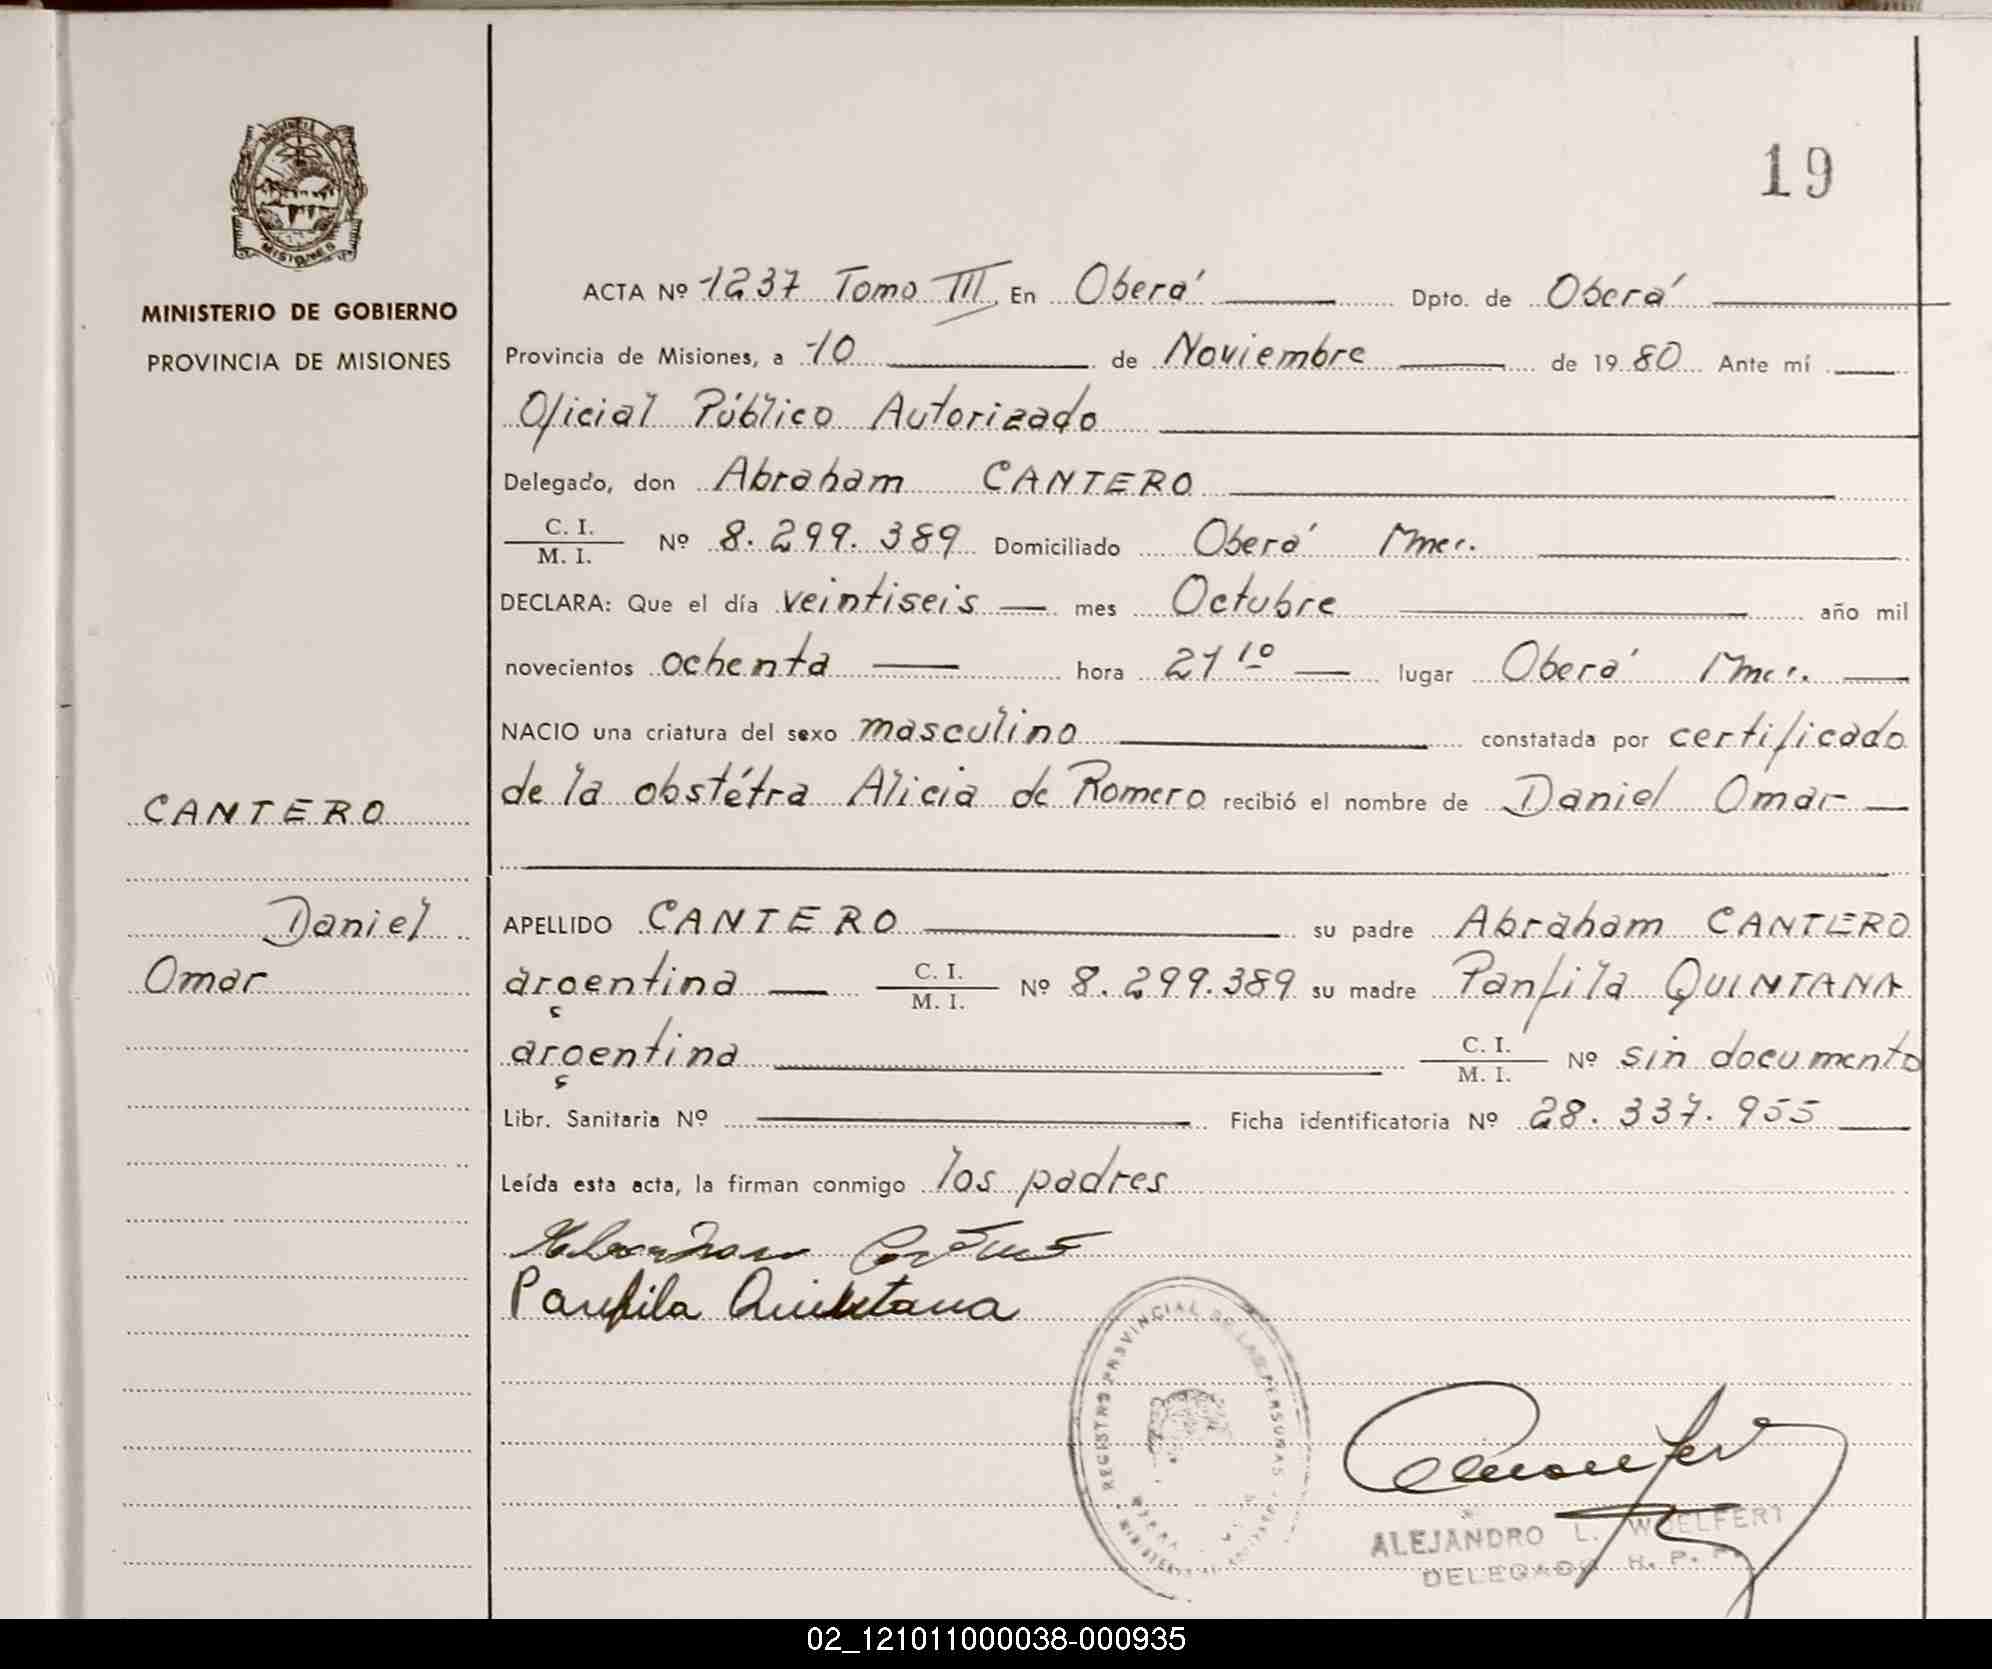 19
MISIONES
MINISTERIO DE GOBIERNO
PROVINCIA DE MISIONES
CANTERO
Daniel
Omar
ACTA Nº 1237 Tomo III En Oberá Dpto. de Oberá
Provincia de Misiones, a 10 de Noviembre de 1980 Ante mí
Oficial Público Autorizado
Delegado, don Abraham CANTERO
C. I.
M. I. Nº 8.299.389 Domiciliado Oberá Mnes.
DECLARA: Que el día veintiseis mes Octubre año mil
novecientos ochenta hora 21 10 lugar Oberá Mnes.
NACIO una criatura del sexo masculino constatada por certificado
de la obstétra Alicia de Romero recibió el nombre de Daniel Omar
APELLIDO CANTERO su padre Abraham CANTERO
argentina C. I. M. I. Nº 8.299.389 su madre Panfila QUINTANA
argentina C. I. M. I. Nº sin documento
Libr. Sanitaria Nº Ficha identificatoria Nº 28.337.955
Leída esta acta, la firman conmigo los padres
Panfila Quintana
REGISTRO PROVINCIAL DE LAS PERSONAS
ALEJANDRO L. WOELFERT
DELEGADO R. P. P.
02_121011000038-000935